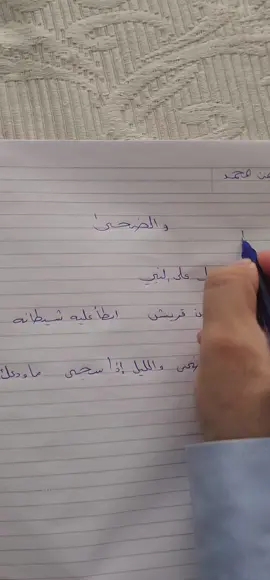 محمد
والضحى
على النبي
قريش ابطأ عليه شيطانه
والليل إذا سجى ما ودعك